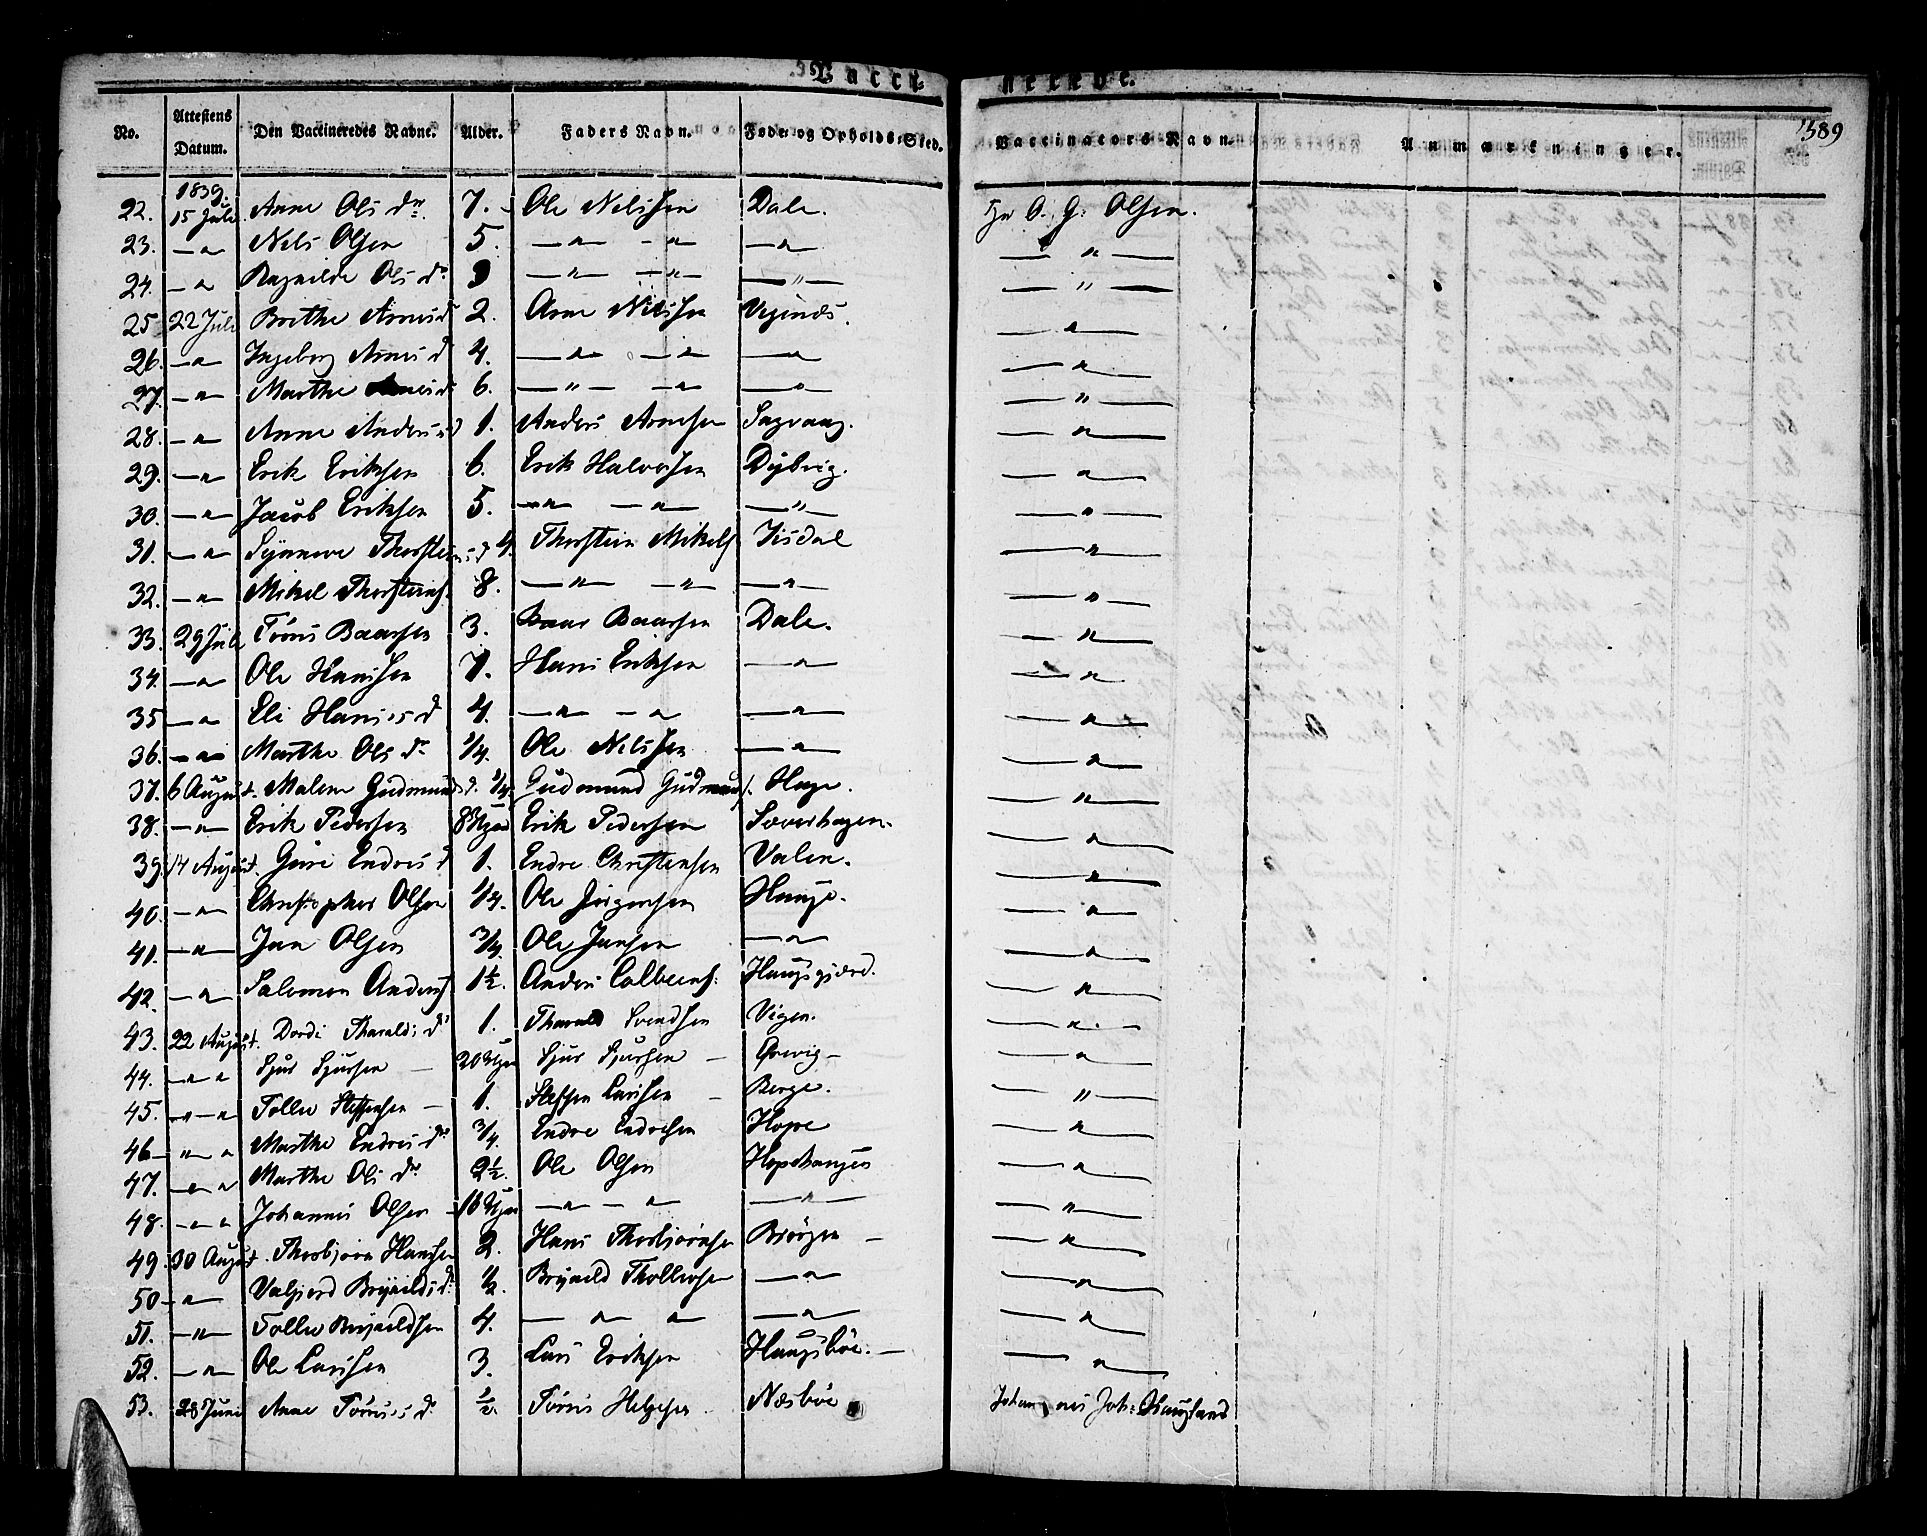 Vacci- nerede.
389
No. Attestens Datum. Den Vaccineredes Navne. Alder. Faders Navn. Føde- og Opholds-Sted. Vaccinators Navn. Anmærkninger.
1839.
22. 15 Juli Anne Ols dr. 7. Ole Nilssen Dale. Hr O. G. Olsen.
23. —"— Nels Olsen 5. —"— —"— —"— —"—
24. —" Ragnilde Ols dr 3 —"— —"— —"— —"—
25. 22 Juli Brithe Arnes d 2. Arne Nilssen Vejenæs. —"—
26. —"— Ingeborg Arnes d 4. —"— —"— —"— —"—
27. —"— Marthe Arnes d 6. —"— —"— —"— —"—
28. —"— Anne Anders d 1. Anders Arnesen Sagvaag. —"—
29. —"— Erik Eriksen 6. Erik Halvorsen Dybvig. —"—
30. —"— Jacob Eriksen 5. —"— —"— —"— —"—
31. —"— Synneve Thorsteins d 4. Thorstein Mikels Iisdal —"—
32. —"— Mikel Thorsteins. 8. —"— —"— —"— —"—
33. 29 Juli Tørris Baarsen 3. Baar Baarsen Dale. —"—
34. —"— Ole Hanssen 7. Hans Eriksen —"— —"—
35 —"— Eli Hanses d 4. —"— —"— —"— —"—
36. —"— Marthe Ols dr 1/4. Ole Nilssen —"— —"—
37. 6 August. Malene Gudmunds d. 1/4. Gudmund Gudmunds. Hage. —"—
38. —"— Erik Pedersen 8 Uger Erik Pedersen Sæverhagen. —"—
39. 14 August. Guri Endres d 1. Endre Christensen Valen. —"—
40. —"— Christopher Olsen 1/4. Ole Jørgensen Hauge. —"—
41. —"— Jan Olsen 3/4. Ole Jansen —"— —"—
42. —"— Salomon Anders 1½. Anders Colbeens. Haugsgjærd. —"—
43. 22 August. Dordi Tharalds dr 1. Tharald Svendsen Vigen. —"—
44. —"" Sjur Sjursen — 20 Uger Sjur Sjursen — Grevig — —"—
45. —"—" Tollev Steffensen — 1. Steffen Larssen — Berge. —"—
46 —"—" Marthe Endres dr 3/4. Endre Endresen Hope —"—
47. —"—" Marthe Ols dr 2½. Ole Olsen Hopehaugen —"—
48. —"—" Johannes Olsen — 16 Uger —"—"— —"— —"—
49. 30 August. Thorbjørn Hanssen 2. Hans Thorbjørnsen Bjørgen — —"—
50 —"— Valgjerd Brynilds dr ½. Brynild Thollevsen —"— —"—
51. —"— Tollev Brynildsen 4. —"— "— —"— —"—
52. —"— Ole Larssen 3. Lars Eriksen Haugsbøe. — —"—
53. 28 Juni Anne Tørres dr ½. Tørris Helgesen Næsbøe Johannes Joh: Haugland